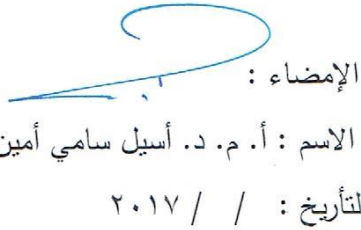 الإمضاء :
الاسم : أ. م. د. أسيل سامي أمين
لتأريخ : / / ٢٠١٧